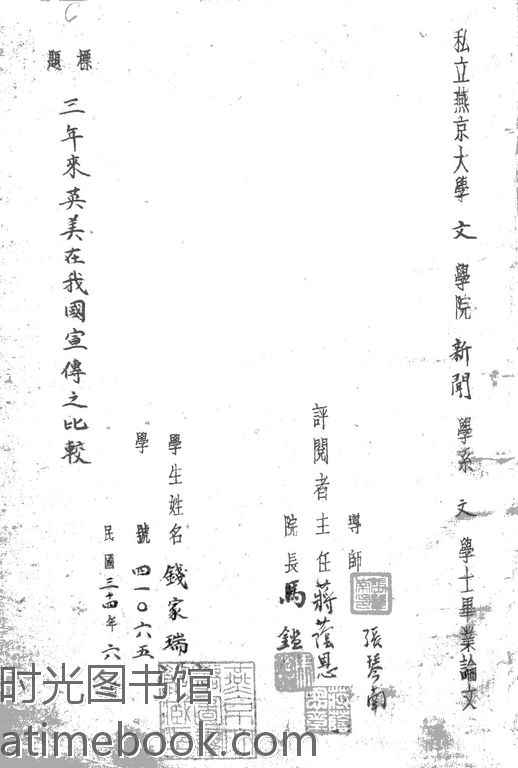 私立燕京大學 文 學院 新聞 學系 文 學士畢業論文
導師 張琴南
評閱者主任 蔣蔭恩
院長 馬鑑
學生姓名 錢家瑞
學號 四一〇六五
民國三十四年六
標題
三年來英美在我國宣傳之比較
时光图书馆
atimebook.com